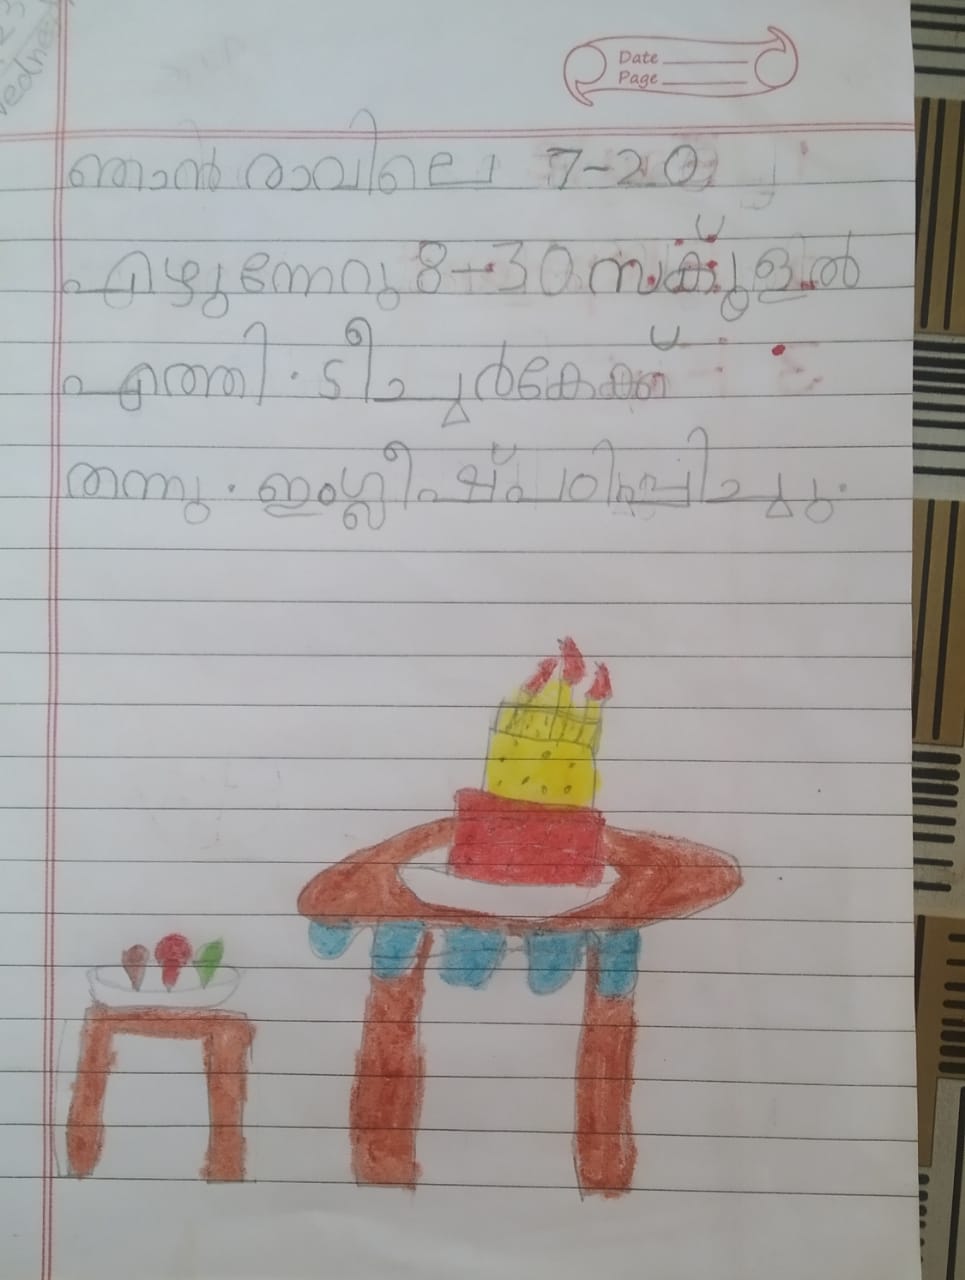 Date
Page
ഞാൻ രാവിലെ 7-20
എഴുന്നേറു 8-30 സ്കൂളിൽ
എത്തി. ടീച്ചർ കേക്ക്
തന്നു. ഇംഗ്ലീഷ് പഠിപ്പിച്ചു.